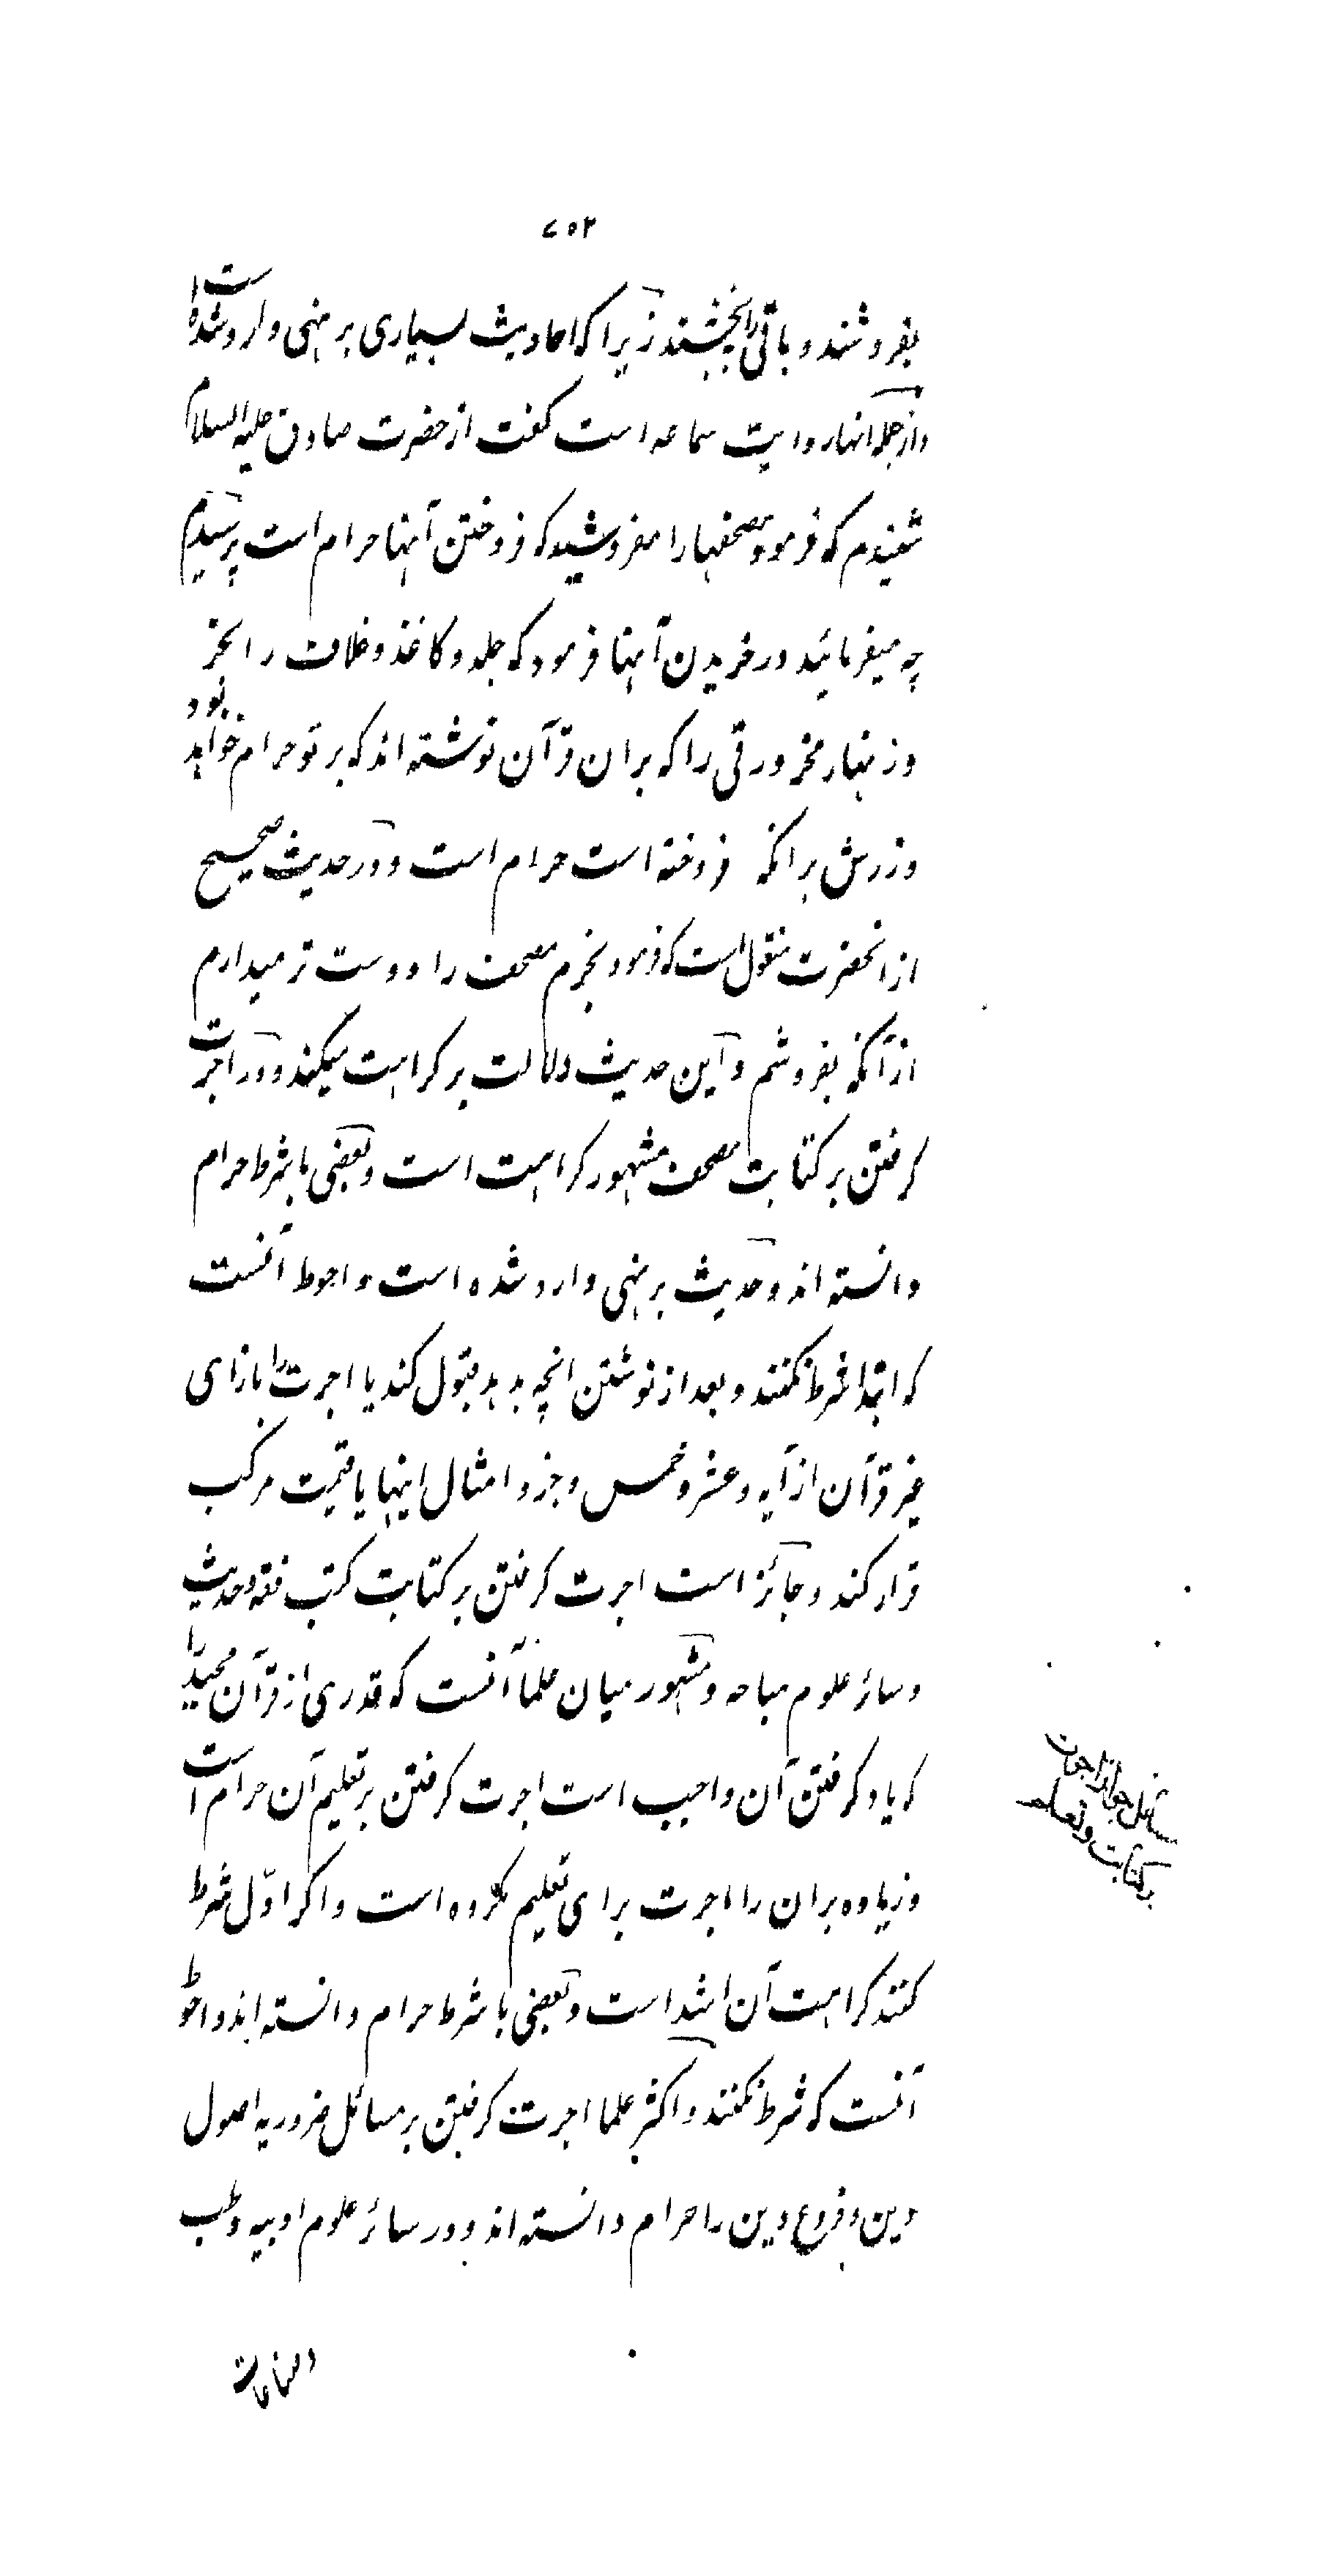 ۷۵۲
بفروشند و باقی را بخشند زیرا که احادیث بسیاری بر نهی وارد شده است
و از جمله انها روایت سماعه است کفت از حضرت صادق علیه السلام
شنیدم که فرمود مصحفها را مفروشید که فروختن آنها حرام است پرسیدم
چه میفرمائید در خریدن آنها فرمود که جلد و کاغذ و غلاف را بخر
و زنهار مخر ورقی را که بر ان قرآن نوشته اند که بر تو حرام خواهد بود
و زرش بر انکه فروخته است حرام است و در حدیث صحیح
از انحضرت منقول است که فرمود بخرم مصحف را دوست تر میدارم
از آنکه بفروشم و این حدیث دلالت بر کراهت میکند و در اجرت
کرفتن بر کتابت مصحف مشهور کراهت است و بعضی با شرط حرام
دانسته اند و حدیث بر نهی وارد شده است و احوط آنست
که ابتدا شرط نکنند و بعد از نوشتن انچه بدهد قبول کند یا اجرت را بازای
غیر قرآن از آیه و عشر و خمس و جزو و امثال اینها یا قیمت مرکب
قرار کند و جائز است اجرت کرفتن بر کتابت کتب فقه و حدیث
و سائر علوم مباحه و مشهور میان علما آنست که قدری از قرآن مجید را
که یاد کرفتن آن واجب است اجرت کرفتن بر تعلیم آن حرام است
و زیاده بر ان را اجرت برای تعلیم مکروه است و اکر اوّل شرط
کنند کراهت آن اشد است و بعضی با شرط حرام دانسته اند و احوط
آنست که شرط نکنند و اکثر علما اجرت کرفتن بر مسائل ضروریه اصول
دین و فروع دین را حرام دانسته اند و در سائر علوم ادبیه و طب
مسائل جواز اجرت
بر کتابت و تعلیم